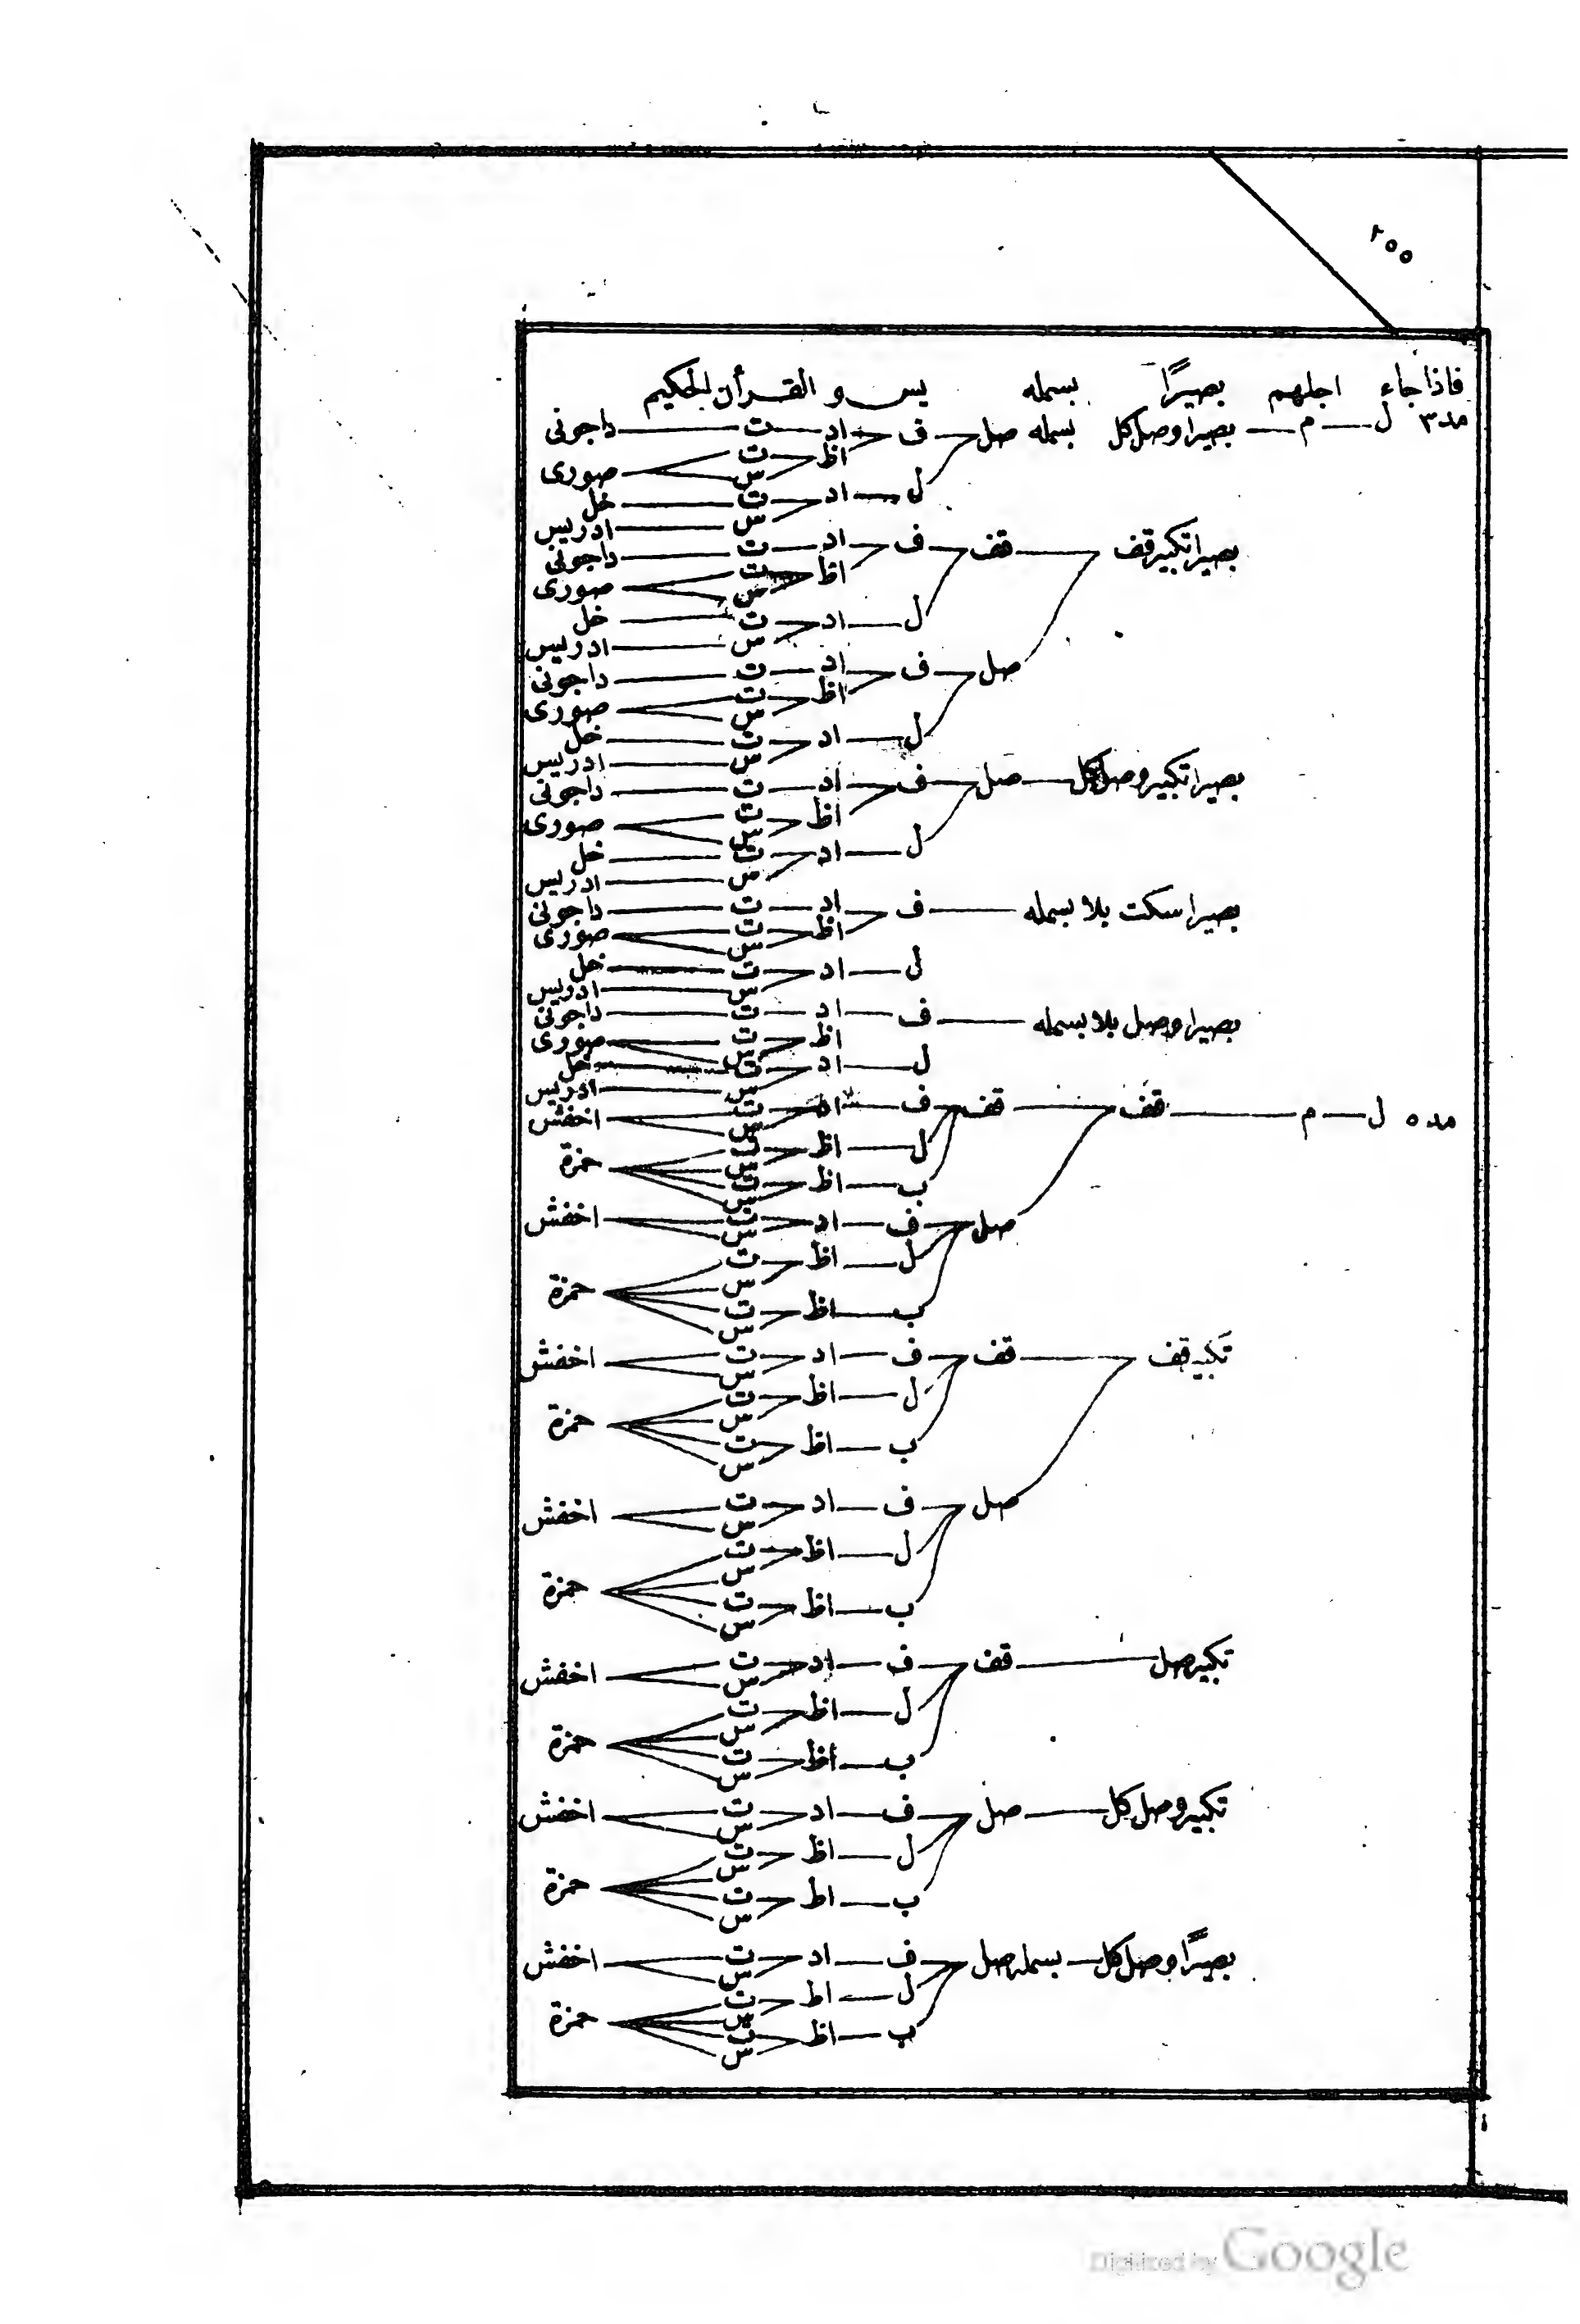 ٢٥٥
فاذا جاء اجلهم بصيرًا بسمله يس و القرأن الحكيم
مد ٣ ل م بصيرا وصل كل بسمله صل ف اد ت داجونى
اظ ت س صورى
ل اد ت خل
س ادريس
بصيرا تكبير قف قف ف اد ت داجونى
اظ ت س صورى
ل اد ت خل
س ادريس
صل ف اد ت داجونى
اظ ت س صورى
ل اد ت خل
س ادريس
بصيرا تكبير وصل كل صل ف اد ت داجونى
اظ ت س صورى
ل اد ت خل
س ادريس
بصيرا سكت بلا بسمله ف اد ت داجونى
اظ ت س صورى
ل اد ت خل
س ادريس
بصيرا وصل بلا بسمله ف اد ت داجونى
اظ ت س صورى
ل اد ت خل
س ادريس
مد ٥ ل م قف قف ف اد ت س اخفش
ل اظ ت س حمزة
ب اظ ت س
صل ف اد ت س اخفش
ل اظ ت س حمزة
ب اظ ت س
تكبير قف قف ف اد ت س اخفش
ل اظ ت س حمزة
ب اظ ت س
صل ف اد ت س اخفش
ل اظ ت س حمزة
ب اظ ت س
تكبير صل قف ف اد ت س اخفش
ل اظ ت س حمزة
ب اظ ت س
تكبير وصل كل صل ف اد ت س اخفش
ل اظ ت س حمزة
ب اط ت س
بصيرًا وصل كل بسمله صل ف اد ت س اخفش
ل اط ت س حمزة
ب اظ ت س
Digitized by Google